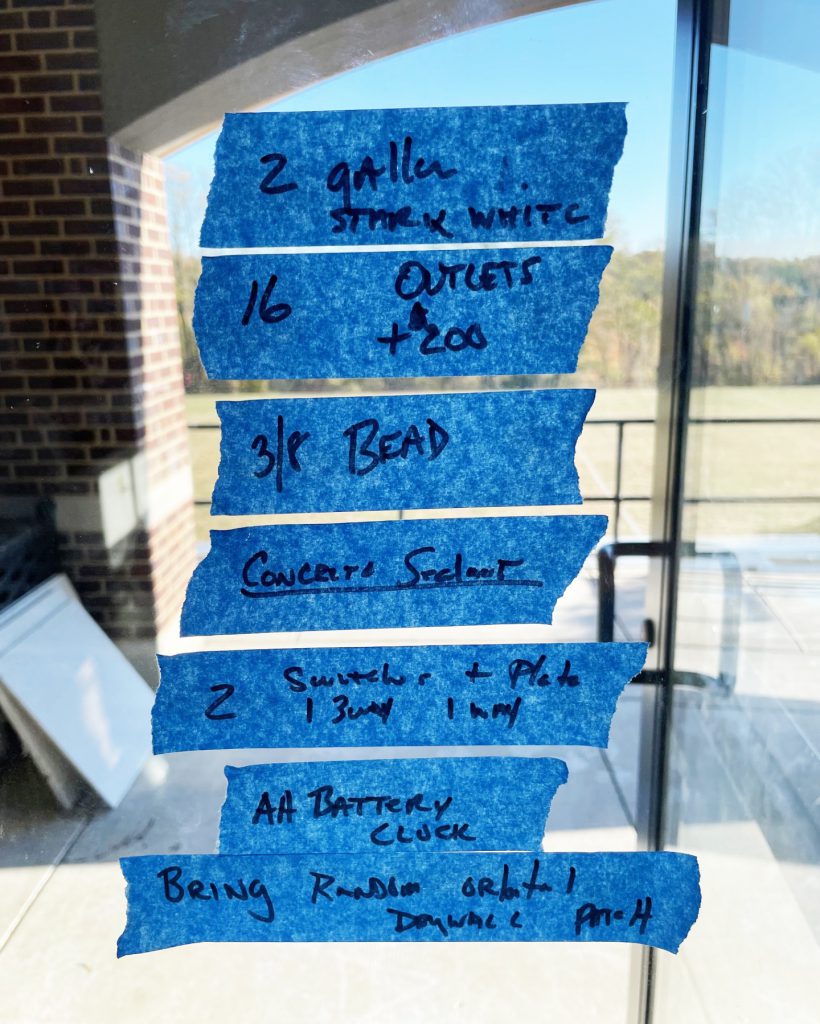 2 gallon
STARK WHITE
16 OUTLETS
+200
3/8 BEAD
CONCRETE Sealant
2 Switches + Plate
1 3way 1 way
AA BATTERY
CLOCK
BRING RANDOM orbital
DRYWALL PATCH